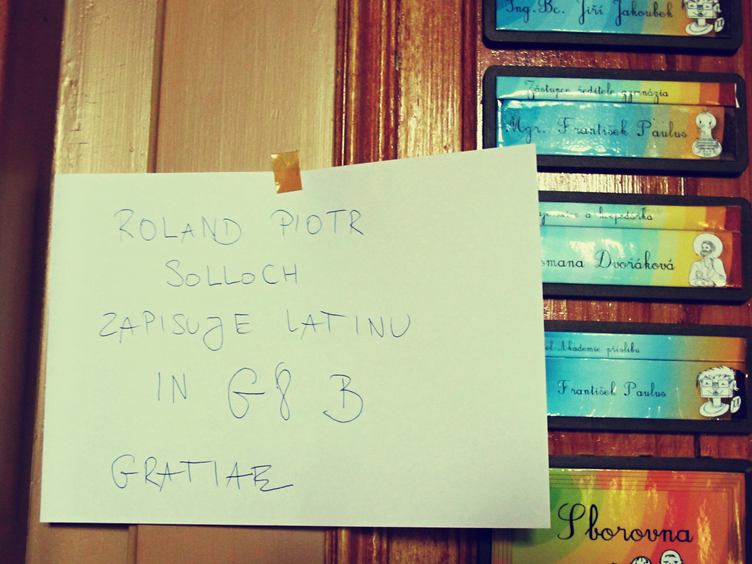 ROLAND PIOTR
SOLLOCH
ZAPISUJE LATINU
IN G8 B
GRATIAE
Ing. Bc. Jiří Jakoubek
Zástupce ředitele gymnázia
Mgr. František Paulus
a hospodářka
omana Dvořáková
el Akademie příslibu
František Paulus
Sborovna